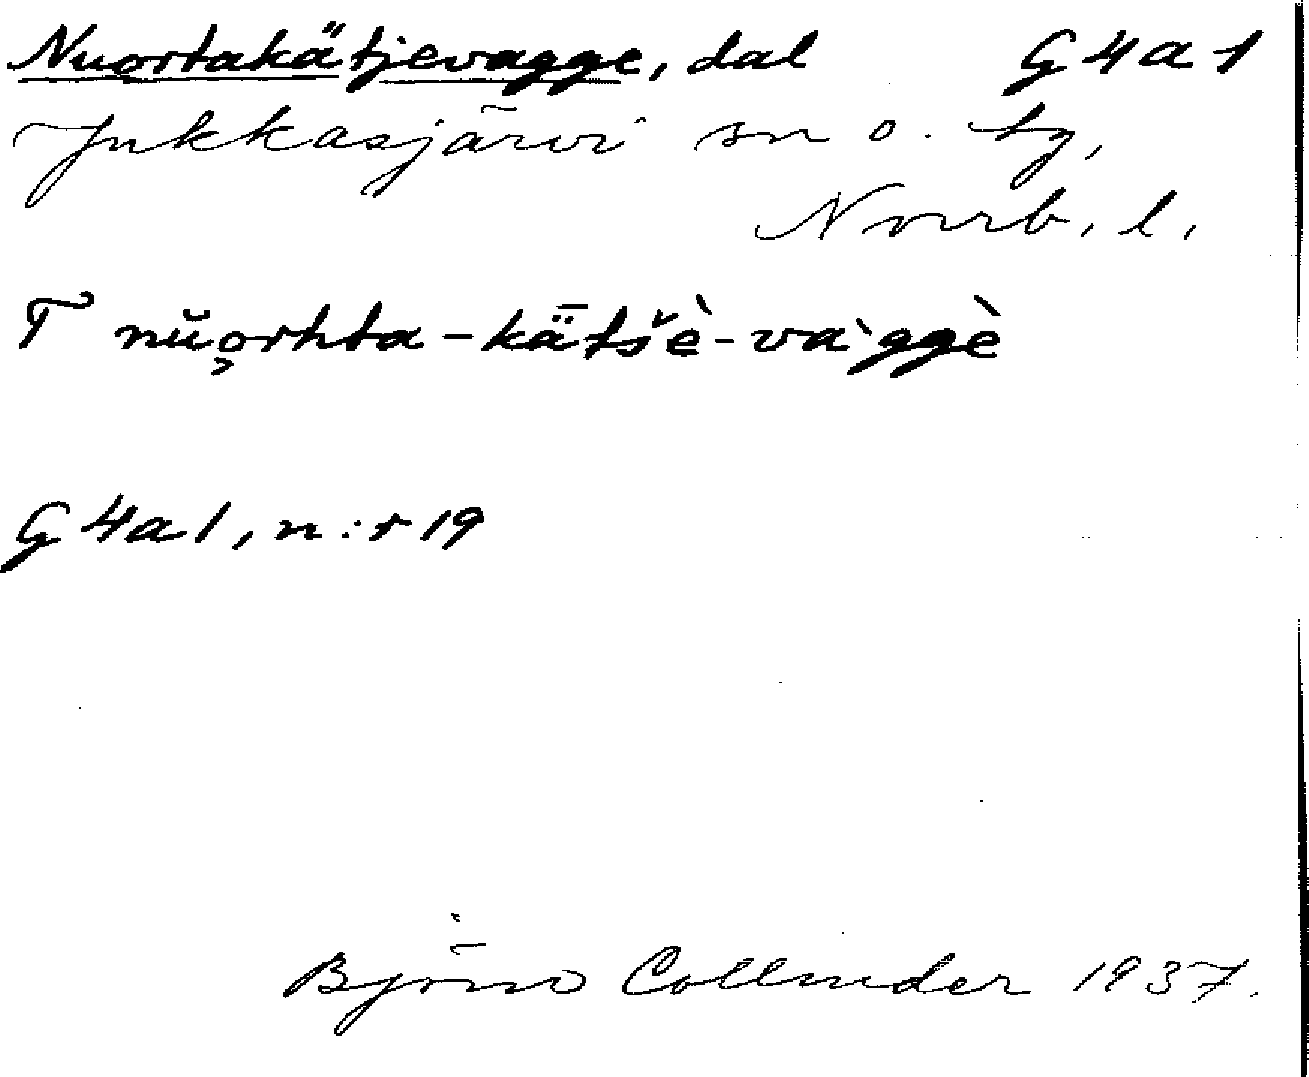 Nuortakätjevagge, dal G 4 a 1
Jukkasjärvi sn o. tg,
Norrb. l.
T nŭo̧rhta-kǟtšè-va`ggè
G 4 a 1, n:r 19
Björn Collinder 1937.